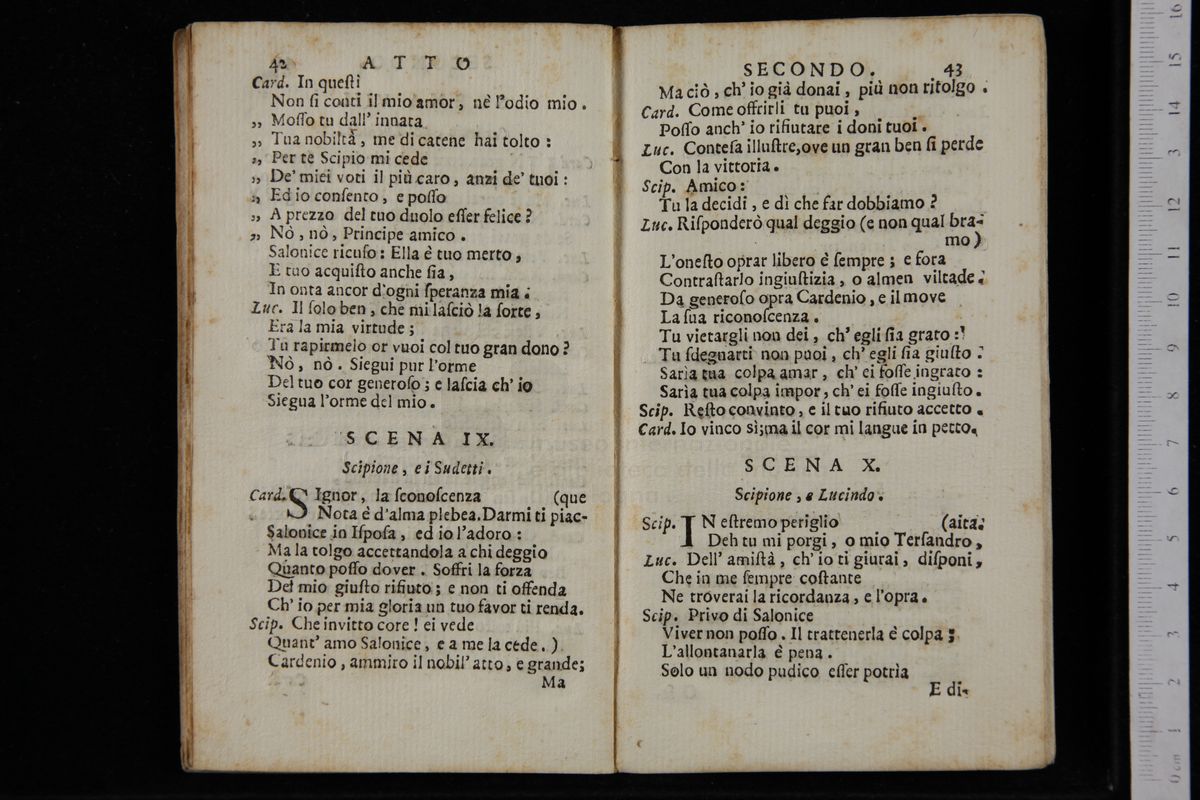 42 ATTO
Card. In queſti
Non ſi conti il mio amor, nè l'odio mio.
,, Moſſo tu dall' innata
,, Tua nobiltà, me di catene hai tolto:
,, Per te Scipio mi cede
,, De' miei voti il più caro, anzi de' tuoi:
,, Ed io conſento, e poſſo
,, A prezzo del tuo duolo eſſer felice?
,, Nò, nò, Principe amico.
Salonice ricuſo: Ella è tuo merto,
E tuo acquiſto anche ſia,
In onta ancor d'ogni ſperanza mia.
Luc. Il ſolo ben, che mi laſciò la ſorte,
Era la mia virtude;
Tu rapirmelo or vuoi col tuo gran dono?
Nò, nò. Siegui pur l'orme
Del tuo cor generoſo; e laſcia ch' io
Siegua l'orme del mio.
SCENA IX.
Scipione, e i Sudetti.
Card. SIgnor, la ſconoſcenza (que
Nota è d'alma plebea. Darmi ti piac-
Salonice in Iſpoſa, ed io l'adoro:
Ma la tolgo accettandola a chi deggio
Quanto poſſo dover. Soffri la forza
Del mio giuſto rifiuto; e non ti offenda
Ch' io per mia gloria un tuo favor ti renda.
Scip. Che invitto core! ei vede
Quant' amo Salonice, e a me la cede.)
Cardenio, ammiro il nobil' atto, e grande;
Ma
SECONDO. 43
Ma ciò, ch' io già donai, più non ritolgo.
Card. Come offrirli tu puoi,
Poſſo anch' io rifiutare i doni tuoi.
Luc. Conteſa illuſtre, ove un gran ben ſi perde
Con la vittoria.
Scip. Amico:
Tu la decidi, e dì che far dobbiamo?
Luc. Riſponderò qual deggio (e non qual bra-
mo)
L'oneſto oprar libero è ſempre; e fora
Contraſtarlo ingiuſtizia, o almen viltade.
Da generoſo opra Cardenio, e il move
La ſua riconoſcenza.
Tu vietargli non dei, ch' egli ſia grato:
Tu ſdegnarti non puoi, ch' egli ſia giuſto:
Sarìa tua colpa amar, ch' ei foſſe ingrato:
Sarìa tua colpa impor, ch' ei foſſe ingiuſto.
Scip. Reſto convinto, e il tuo rifiuto accetto.
Card. Io vinco sì; ma il cor mi langue in petto.
SCENA X.
Scipione, e Lucindo.
Scip. IN eſtremo periglio (aita.
Deh tu mi porgi, o mio Terſandro,
Luc. Dell' amiſtà, ch' io ti giurai, diſponi,
Che in me ſempre coſtante
Ne troverai la ricordanza, e l'opra.
Scip. Privo di Salonice
Viver non poſſo. Il trattenerla è colpa;
L'allontanarla è pena.
Solo un nodo pudico eſſer potrìa
E di-
16
15
14
13
12
11
10
9
8
7
6
5
4
3
2
1
0 cm